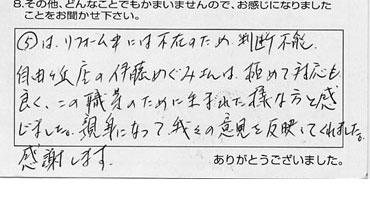 8.その他、どんなことでもかまいませんので、お感じになりました
ことをお聞かせ下さい。
⑤は、リフォーム中には不在のため、判断不能。
自由ヶ丘店の伊藤めぐみさんは、極めて対応も
良く、この職業のために生まれた様な方と感
じました。親身になって、我々の意見を反映してくれました。
感謝します。
ありがとうございました。